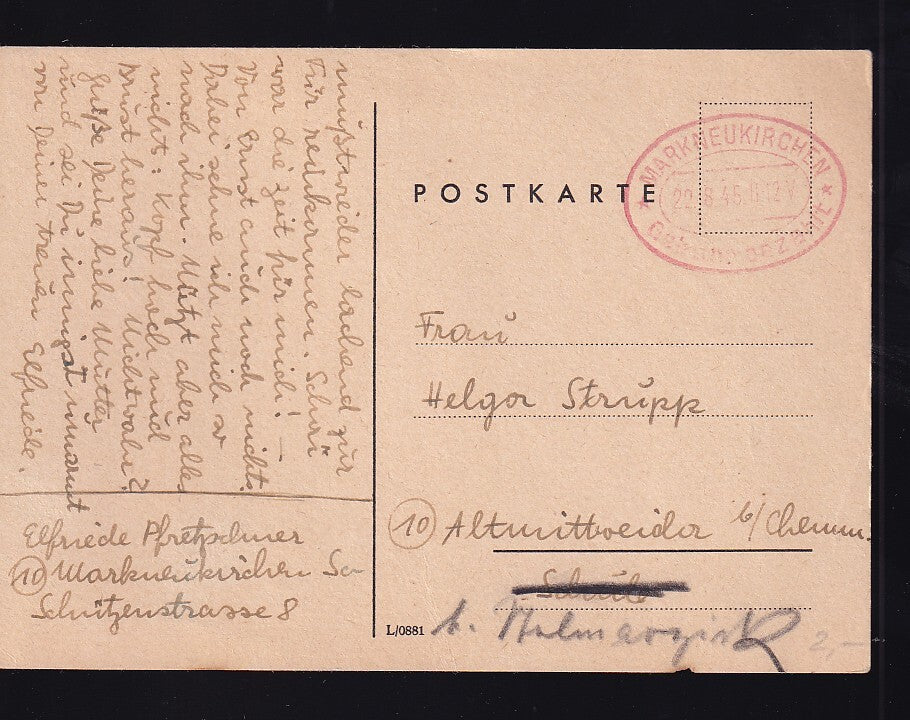 mußt wieder lachend zur
Tür reinkommen. Schön
war die Zeit für mich! —
Von Ernst auch noch nichts.
Dabei sehne ich mich so
nach ihm. Nützt aber alles
nichts. Kopf hoch und
Brust heraus! Nicht wahr?
Grüße Deine liebe Mutter
und sei Du innigst umarmt
von Deiner treuen Elfriede.
Elfriede Pfretzschner
10 Markneukirchen Sa
Schützenstrasse 8
POSTKARTE
MARKNEUKIRCHEN
Gebühr bezahlt
Frau
Helga Strupp
10 Altmittweida b/Chemn.
Schule
L/0881
2,-